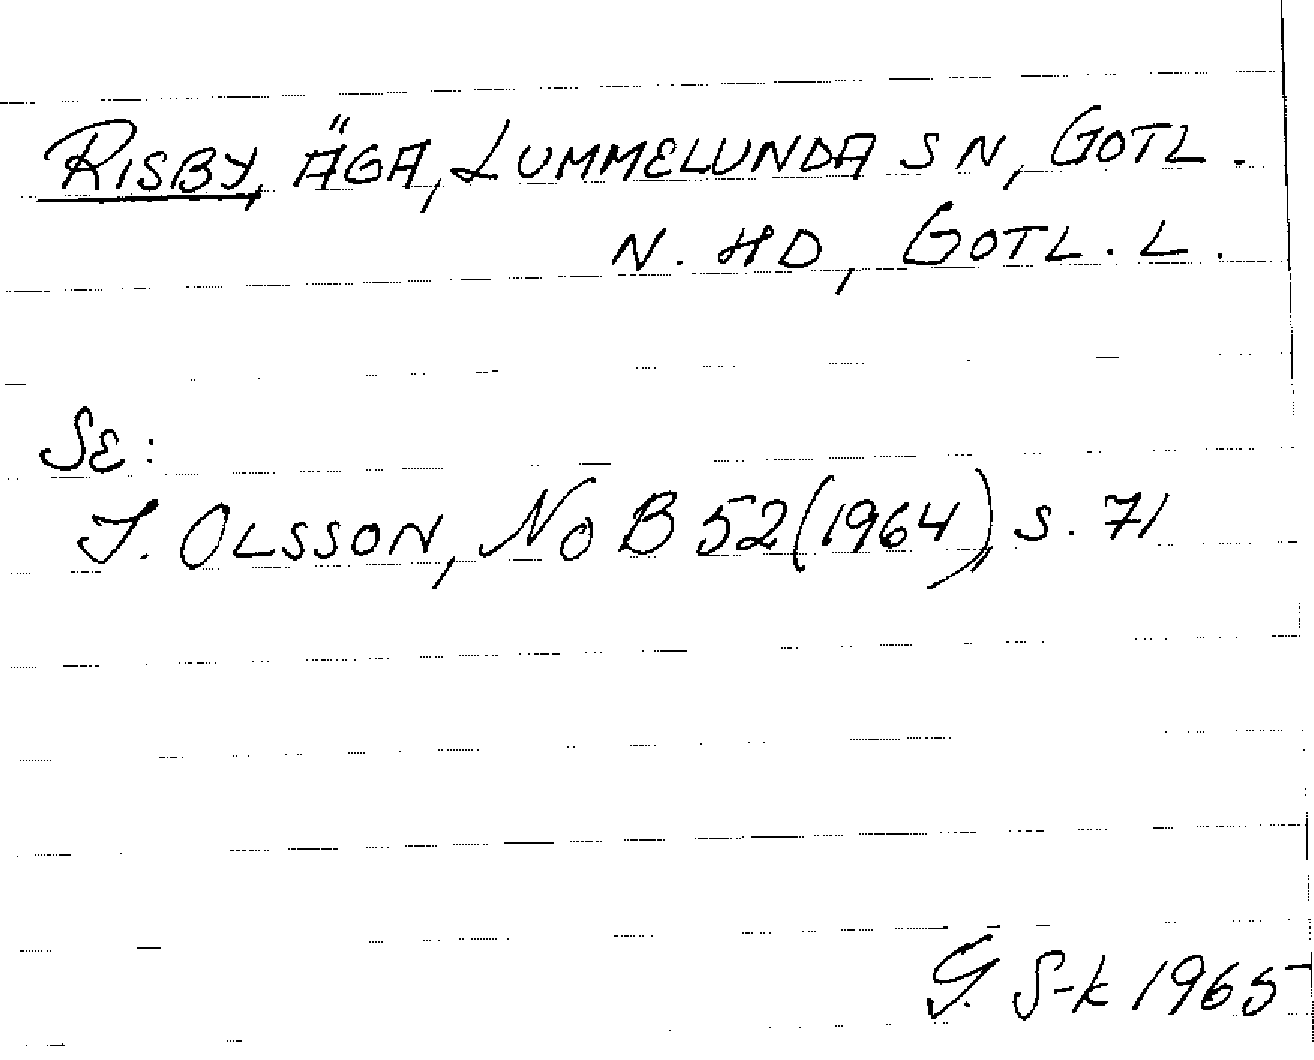 RISBY, ÄGA, LUMMELUNDA SN, GOTL.
N. HD, GOTL. L.
SE:
I. OLSSON, NoB 52 (1964), S. 71
G. S-k 1965